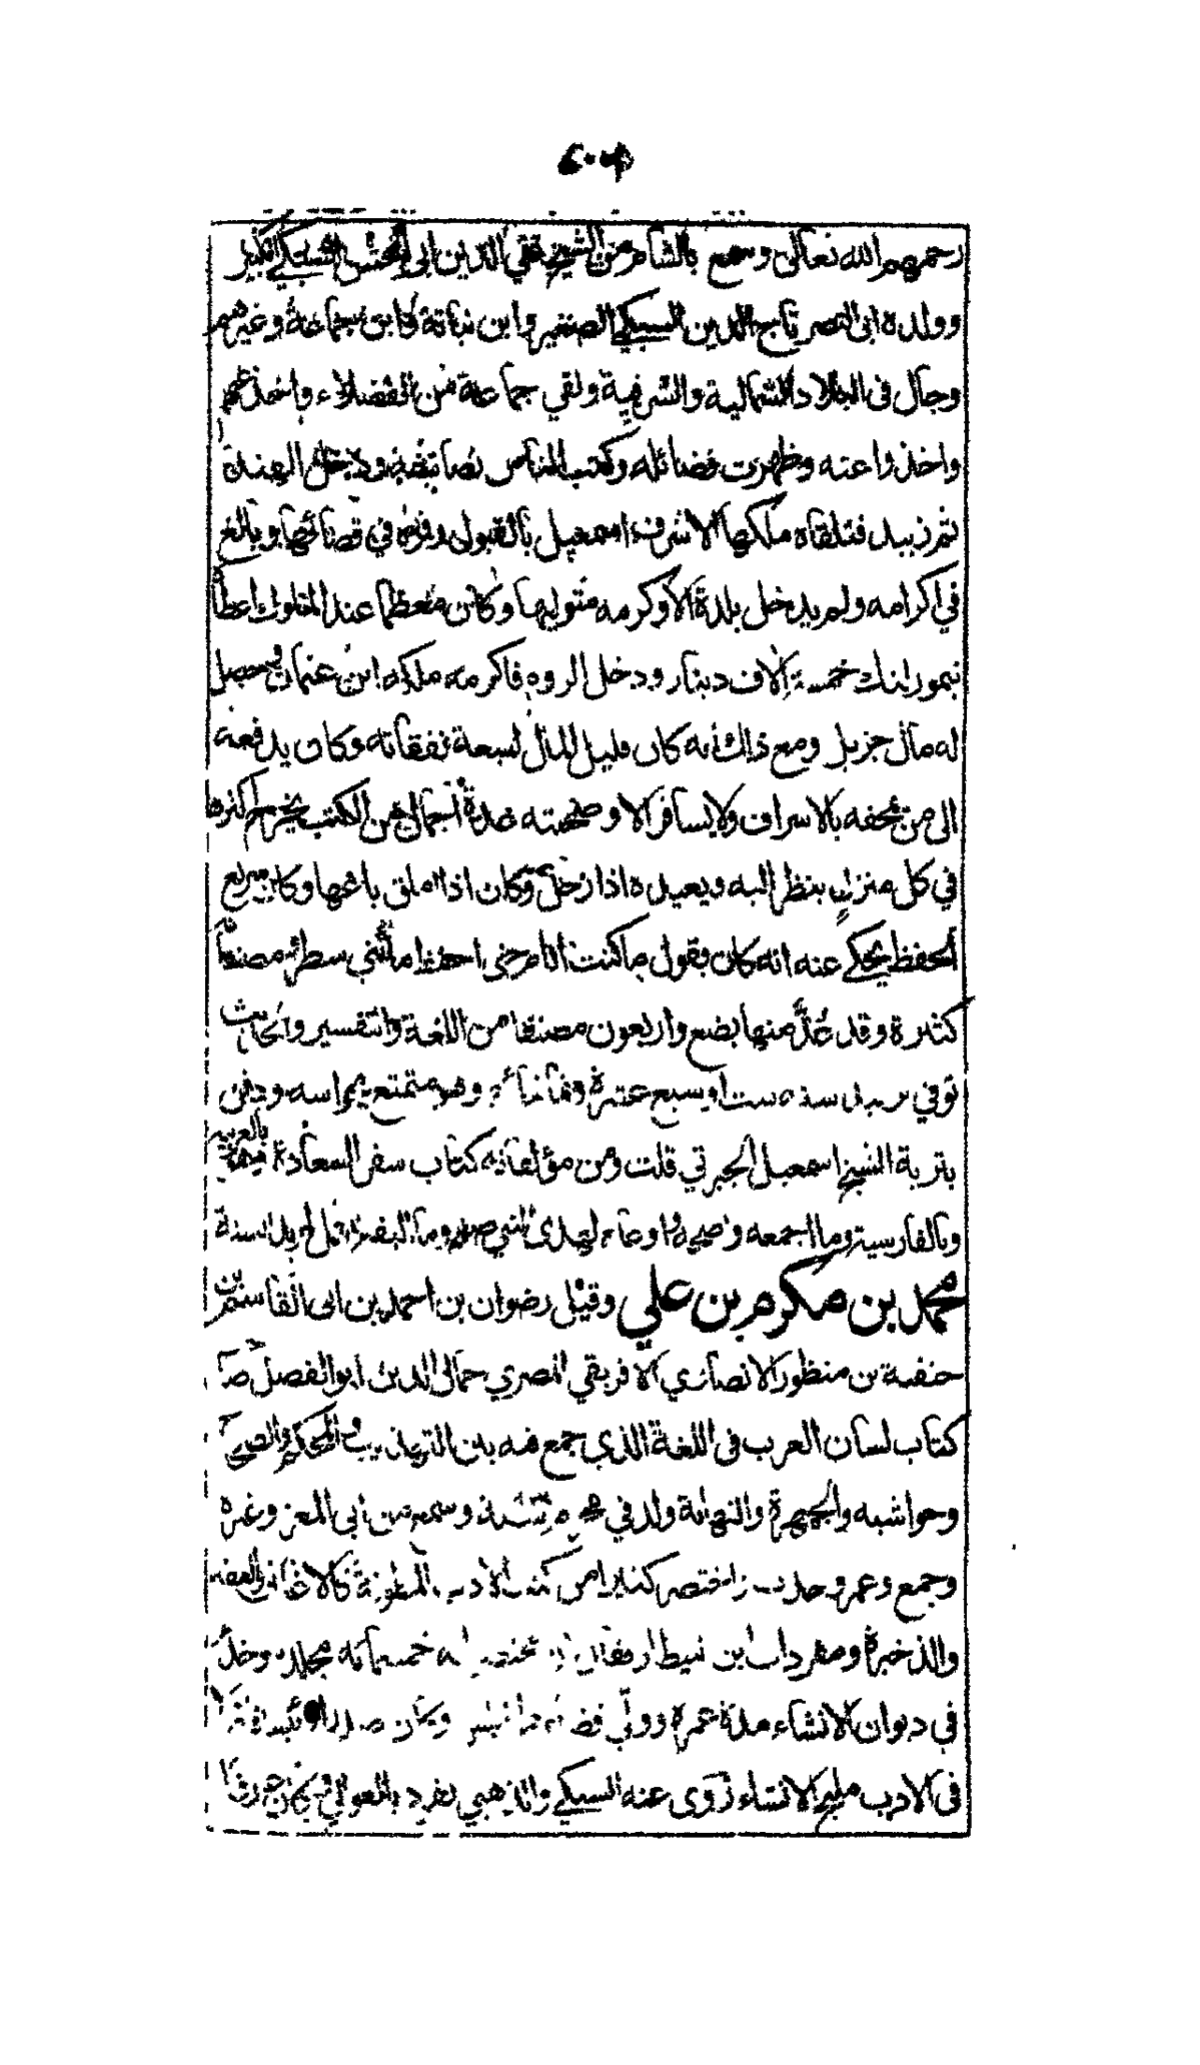 رحمهم الله تعالى وسمع بالشام من الشيخ تقي الدين ابى الحسن السبكي الكبير
وولده ابى النصر تاج الدين السبكي الصغير وابن نباتة وابن جماعة وغيرهم
وجال فى البلاد الشمالية والشرقية ولقي جماعة من الفضلاء واخذ عنهم
واخذوا عنه وظهرت فضائله وكتب الناس تصانيفه ودخل الهند
ثم زبيد فتلقاه ملكها الاشرف اسمعيل بالقبول وقرره في قضائها وبالغ
في اكرامه ولم يدخل بلدة الا وكرمه متوليها وكان معظما عند الملوك اعطاه
تيمور لنك خمسة الاف دينار ودخل الروم فاكرمه ملكه ابن عثمان وحصل
له مال جزيل ومع ذلك انه كان قليل المال لسعة نفقاته وكان يدفعه
الى من يمحقه بالاسراف ولا يسافر الا وصحبته عدة أحمال من الكتب يخرج اكثرها
في كل منزل ينظر اليه ويعيده اذا رحل وكان اذا املق باعها وكان سريع
الحفظ يحكي عنه انه كان يقول ما كنت انام حتى احفظ مأتي سطر مصنفاته
كثيرة وقد عُدَّ منها بضع واربعون مصنفا من اللغة والتفسير والحديث
توفي بزبيد سنة ست او سبع عشرة وثمانمائة وهو متمتع بحواسه ودفن
بتربة الشيخ اسمعيل الجبرتي قلت ومن مؤلفاته كتاب سفر السعادة بالعربية
وبالفارسية وما اجمعه لهدى النبي
محمد بن مكرم بن علي وقيل رضوان بن احمد بن ابى القاسم بن
حنفة بن منظور الانصاري الافريقي المصري جمال الدين ابو الفضل صا
كتاب لسان العرب فى اللغة الذي جمع فيه بين التهذيب والمحكم والصحاح
وحواشيه والجمهرة والنهاية ولد في وسمع من ابى المعز وغيره
وجمع وعمر وحدث واختصر كثيرا من كتب الادب المطولة كالاغاني والعقد
والذخيرة ومفردات ابن بيطار خمسمائة مجلد وخدم
في ديوان الانشاء مدة عمره وولي قضاء طرابلس وكان صدرا رئيسا فاضلا
فى الادب مليح الانشاء روى عنه السبكي والذهبي تفرد بالعوالي